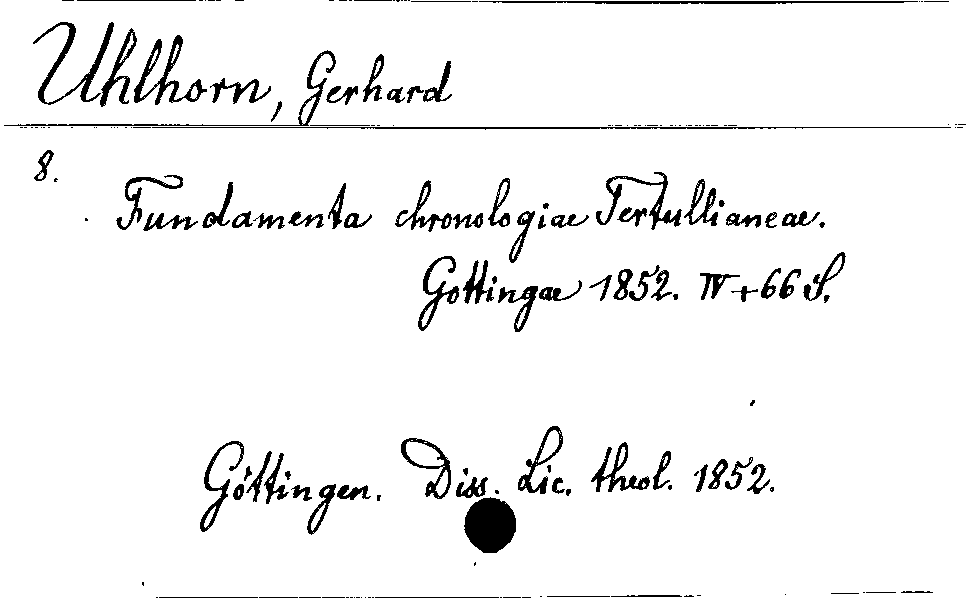 Uhlhorn, Gerhard
8.
Fundamenta chronologiae Tertullianeae.
Gottingae 1852. IV + 66 S.
Göttingen. Diss. Lic. theol. 1852.